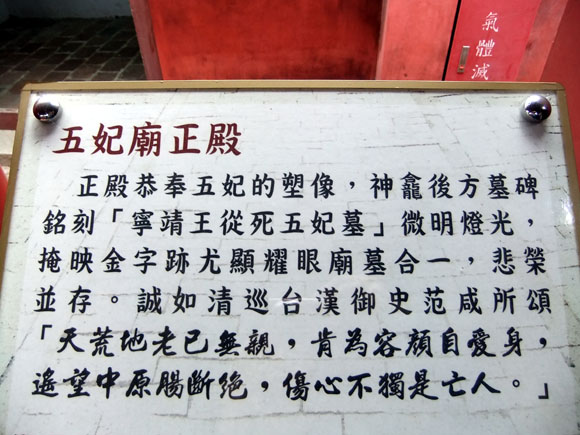 氣體滅
五妃廟正殿
正殿恭奉五妃的塑像,神龕後方墓碑
銘刻「寧靖王從死五妃墓」微明燈光,
掩映金字跡尤顯耀眼廟墓合一,悲榮
並存。誠如清巡台漢御史范咸所頌
「天荒地老已無親,肯為容顏自愛身,
遙望中原腸斷絕,傷心不獨是亡人。」